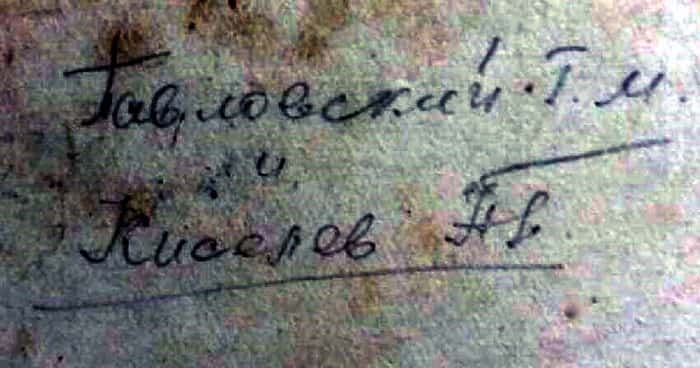 Павловский Г. М.
и
Киселев